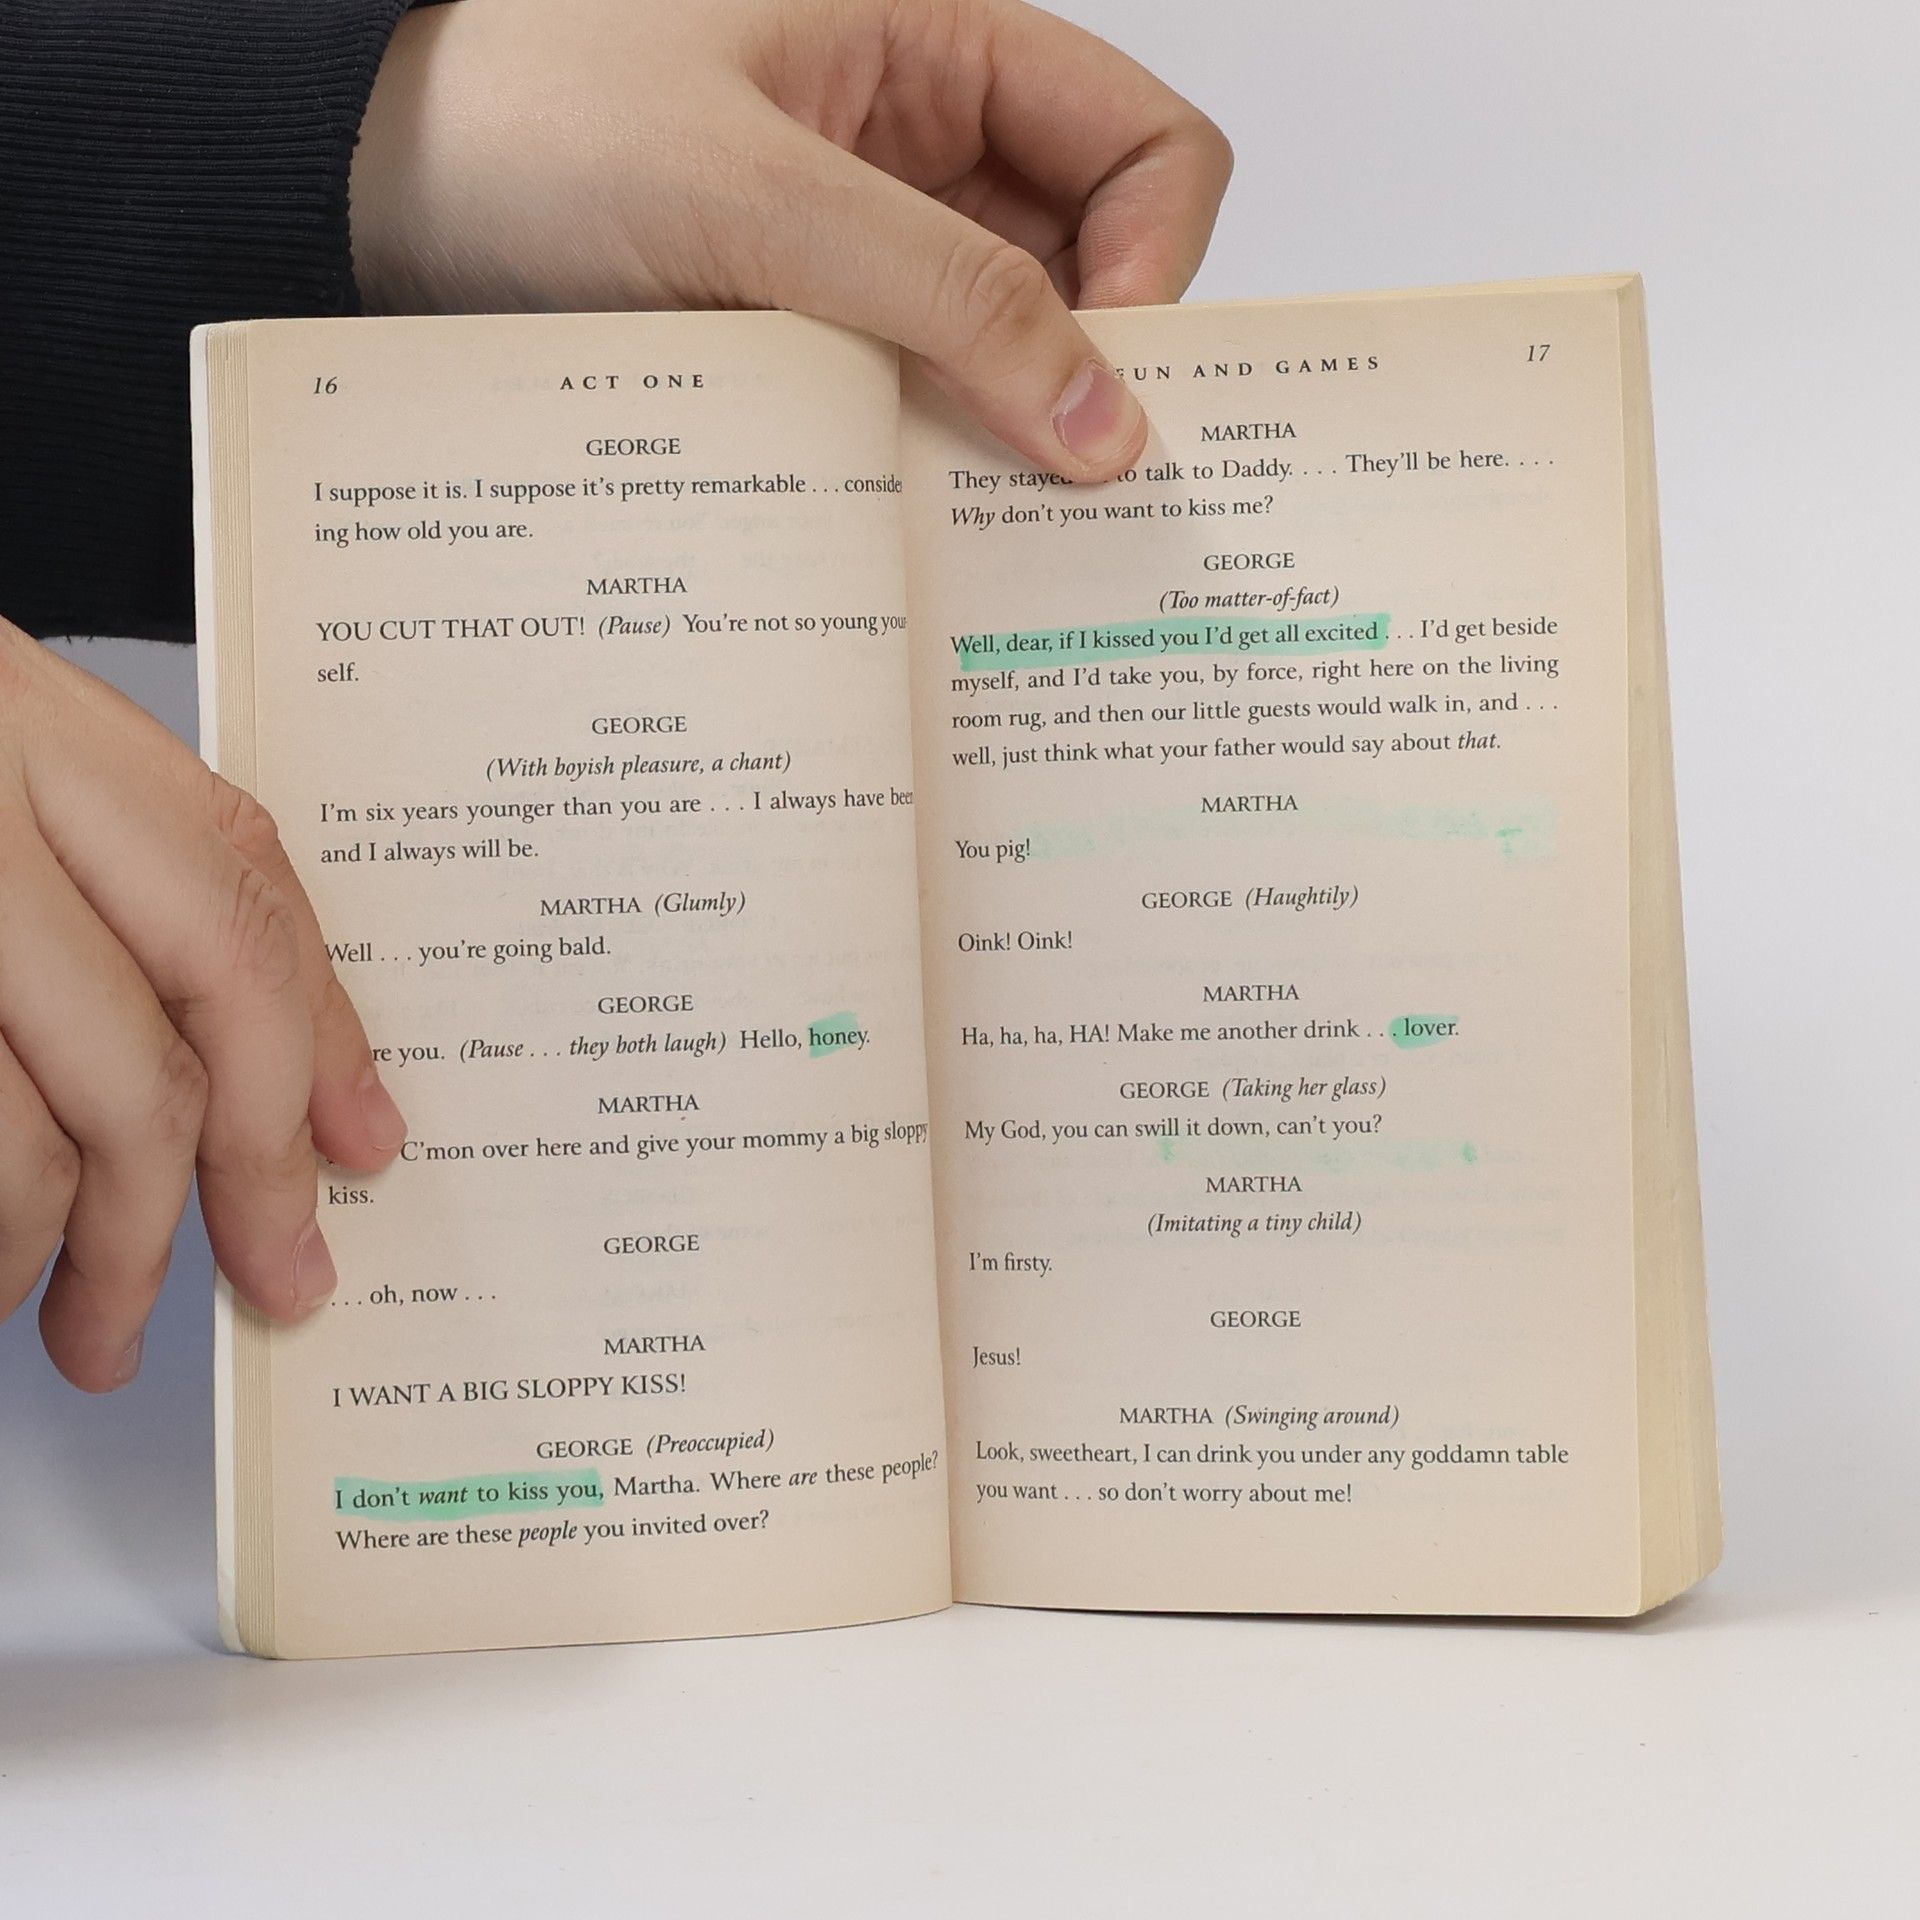 16 ACT ONE
GEORGE
I suppose it is. I suppose it's pretty remarkable . . . conside
ing how old you are.
MARTHA
YOU CUT THAT OUT! (Pause) You're not so young your
self.
GEORGE
(With boyish pleasure, a chant)
I'm six years younger than you are . . . I always have been
and I always will be.
MARTHA (Glumly)
Well . . . you're going bald.
GEORGE
re you. (Pause . . . they both laugh) Hello, honey.
MARTHA
C'mon over here and give your mommy a big sloppy
kiss.
GEORGE
. . . oh, now . . .
MARTHA
I WANT A BIG SLOPPY KISS!
GEORGE (Preoccupied)
I don't want to kiss you, Martha. Where are these people?
Where are these people you invited over?
FUN AND GAMES 17
MARTHA
They stayed to talk to Daddy. . . . They'll be here. . . .
Why don't you want to kiss me?
GEORGE
(Too matter-of-fact)
Well, dear, if I kissed you I'd get all excited . . . I'd get beside
myself, and I'd take you, by force, right here on the living
room rug, and then our little guests would walk in, and . . .
well, just think what your father would say about that.
MARTHA
You pig!
GEORGE (Haughtily)
Oink! Oink!
MARTHA
Ha, ha, ha, HA! Make me another drink . . . lover.
GEORGE (Taking her glass)
My God, you can swill it down, can't you?
MARTHA
(Imitating a tiny child)
I'm firsty.
GEORGE
Jesus!
MARTHA (Swinging around)
Look, sweetheart, I can drink you under any goddamn table
you want . . . so don't worry about me!